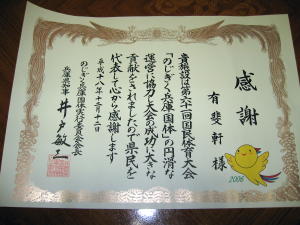 感謝
有斐軒様
貴施設は第六一回国民体育大会
「のじぎく兵庫国体」の円滑な
運営に協力し大会の成功に大きな
貢献をされましたので県民を
代表して心から感謝します
平成十八年十月十二日
のじぎく兵庫国体実行委員会会長
兵庫県知事 井戸敏三
2006